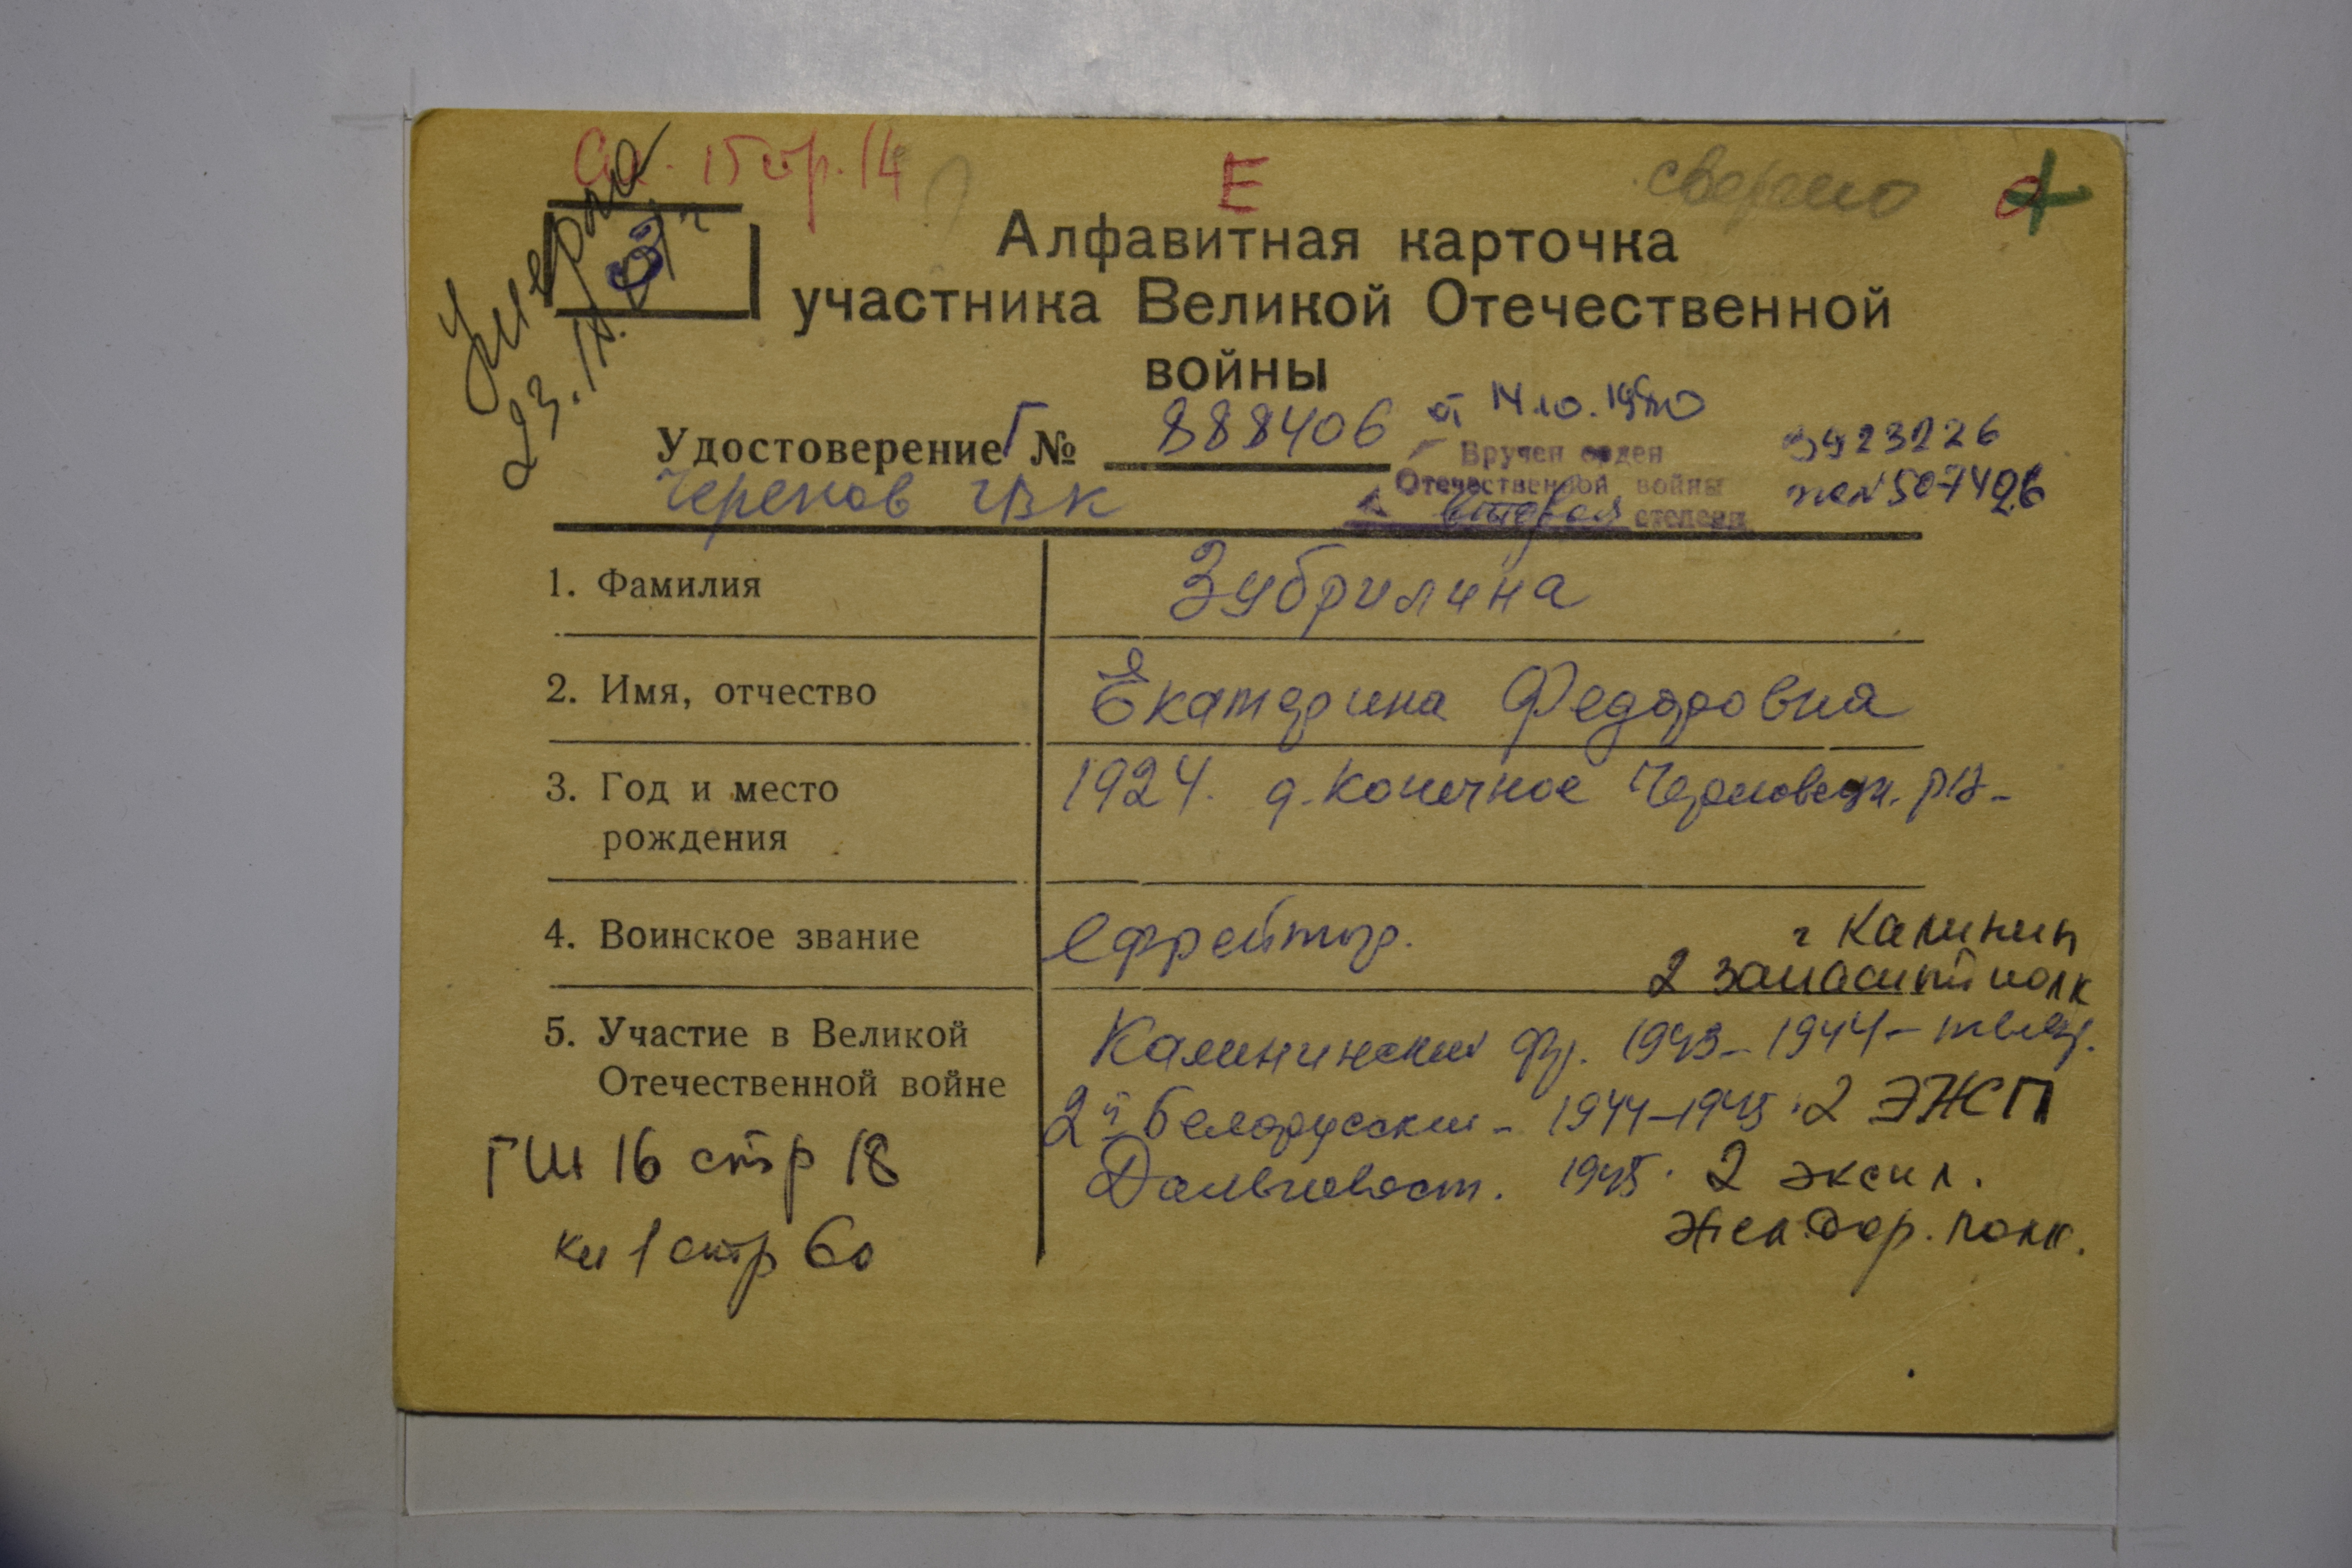 стр. 14
Е
сверено
Умерла
23.IX.
З
Алфавитная карточка
участника Великой Отечественной
войны
Удостоверение Г № 888406 от 14.10.1980
Черепов ГВК
Вручен орден
Отечественной войны
вторая степени
3923226
507426
1. Фамилия Зубрилина
2. Имя, отчество Екатерина Федоровна
3. Год и место 1924. д. Конечное
рождения
4. Воинское звание ефрейтор.
г Калинин
2 запасной полк
5. Участие в Великой Калининский фр. 1943–1944–
Отечественной войне 2й Белорусский – 1944–1945. 2 ЭЖП
Дальневост. 1945. 2 экспл.
жел.дор. полк.
ГШ 16 стр 18
кн 1 стр 60